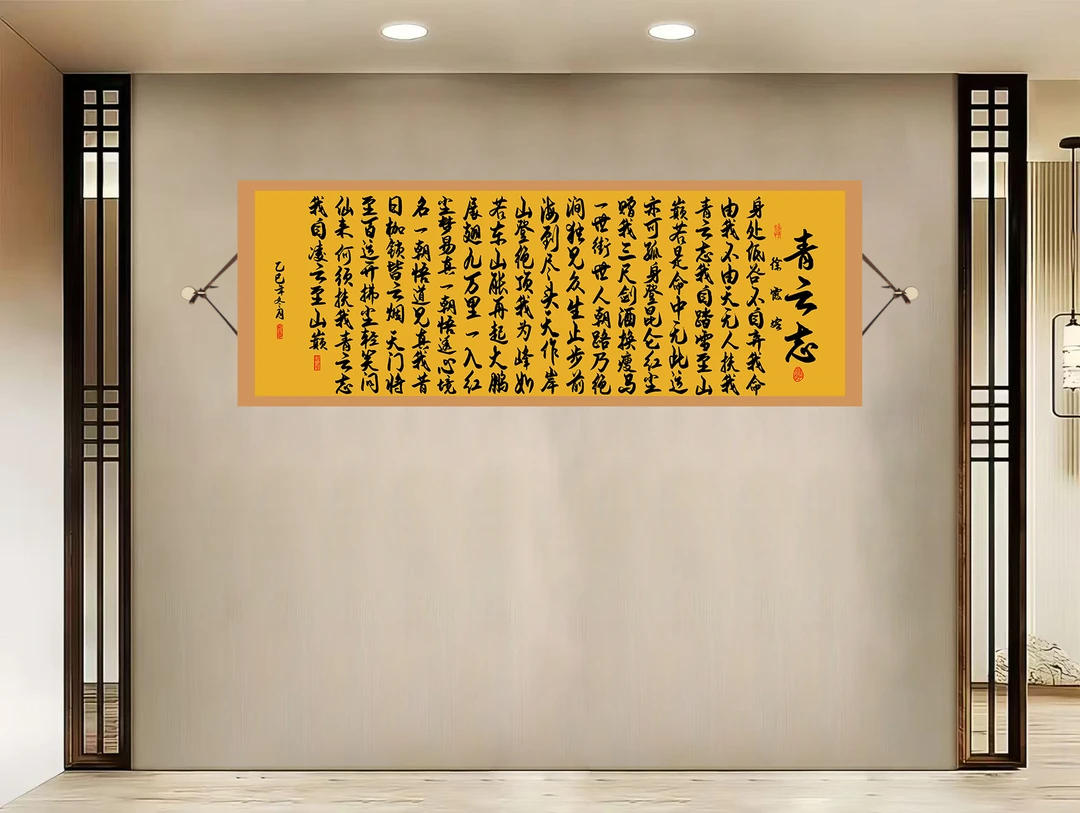 青云志
徐霞客
身处低谷不自弃我命
由我不由天无人扶我
青云志我自踏雪至山
巅若是命中无此运
亦可孤身登昆仑红尘
赠我三尺剑酒换瘦马
一世街世人朝路乃绝
涧独见众生止步前
海到尽头天作岸
山登绝顶我为峰如
若东山能再起大鹏
展翅九万里一入红
尘梦易真一朝悟透心境
名一朝悟道见真我昔
日枷锁皆云烟天门将
至百运开拂尘轻笑问
仙来何须扶我青云志
我自凌云至山巅
乙巳年冬月